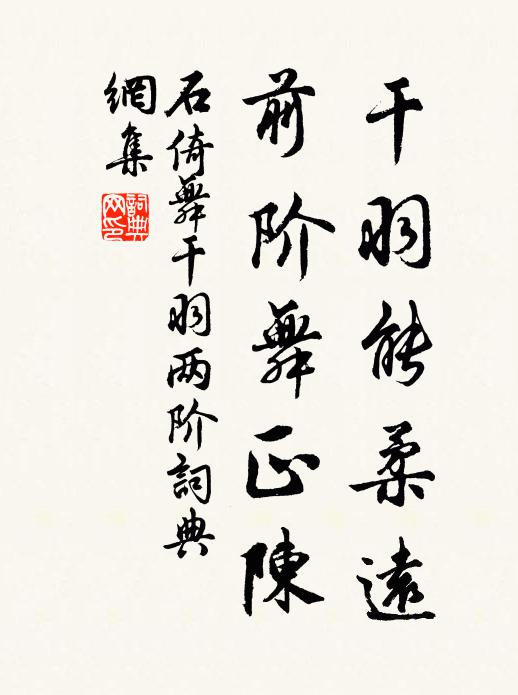 干羽能柔遠
前阶舞正陳
石倚舞干羽两阶詞典
網集
詞典
网印